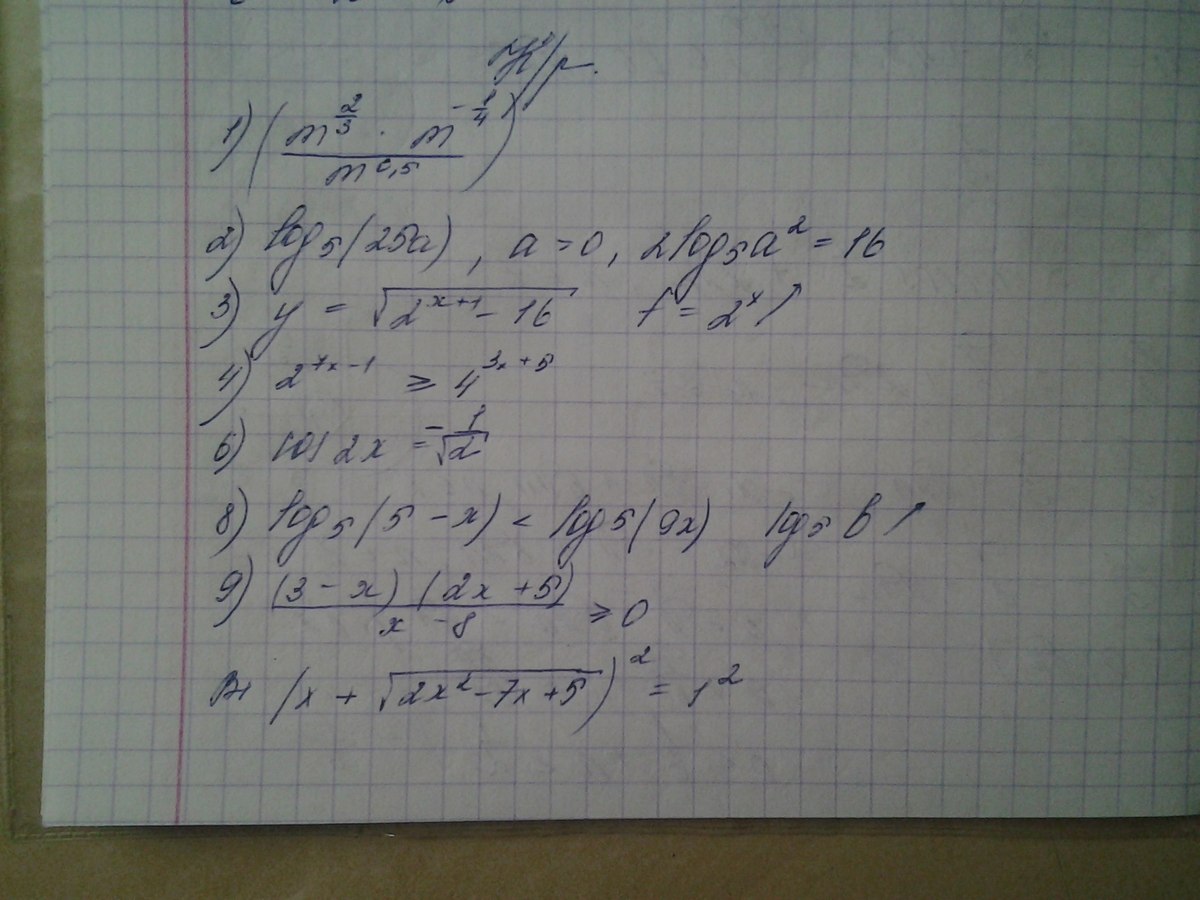 К/р.
1) (m^{2/3} · m^{-1/4} / m^{0,5})
2) log₅(25a), a > 0, 2log₅a² = 16
3) y = √(2^{x+1} - 16) f = 2^x ↗
4) 2^{7x-1} ≥ 4^{3x+5}
6) cos 2x = -1/√2
8) log₅(5 - x) < log5(9x) log₅ b ↗
9) (3 - x) (2x + 5) / x - 8 ≥ 0
B1 (x + √(2x² - 7x + 5))² = 1²